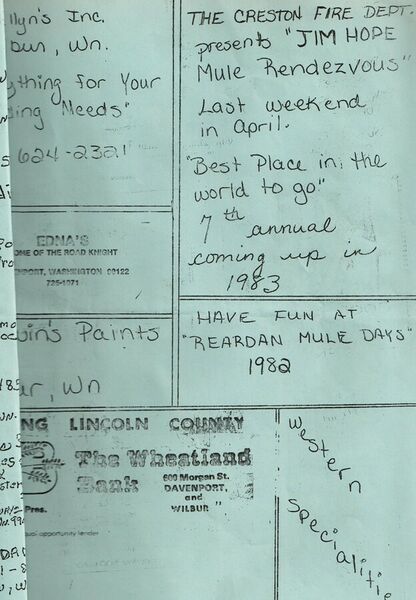 llyn's Inc.
bur, Wn.
ything for Your
ing Needs"
624-2321
EDNA'S
OME OF THE ROAD KNIGHT
NPORT, WASHINGTON 99122
725-1071
uin's Paints
ur, Wn
NG LINCOLN COUNTY
The Wheatland
Bank
600 Morgan St.
DAVENPORT,
and
WILBUR "
Pres.
opportunity lender
THE CRESTON FIRE DEPT.
presents "JIM HOPE
Mule Rendezvous"
Last weekend
in April.
"Best Place in the
world to go."
7th annual
coming up in
1983
HAVE FUN AT
"REARDAN MULE DAYS"
1982
Western
Specialitie